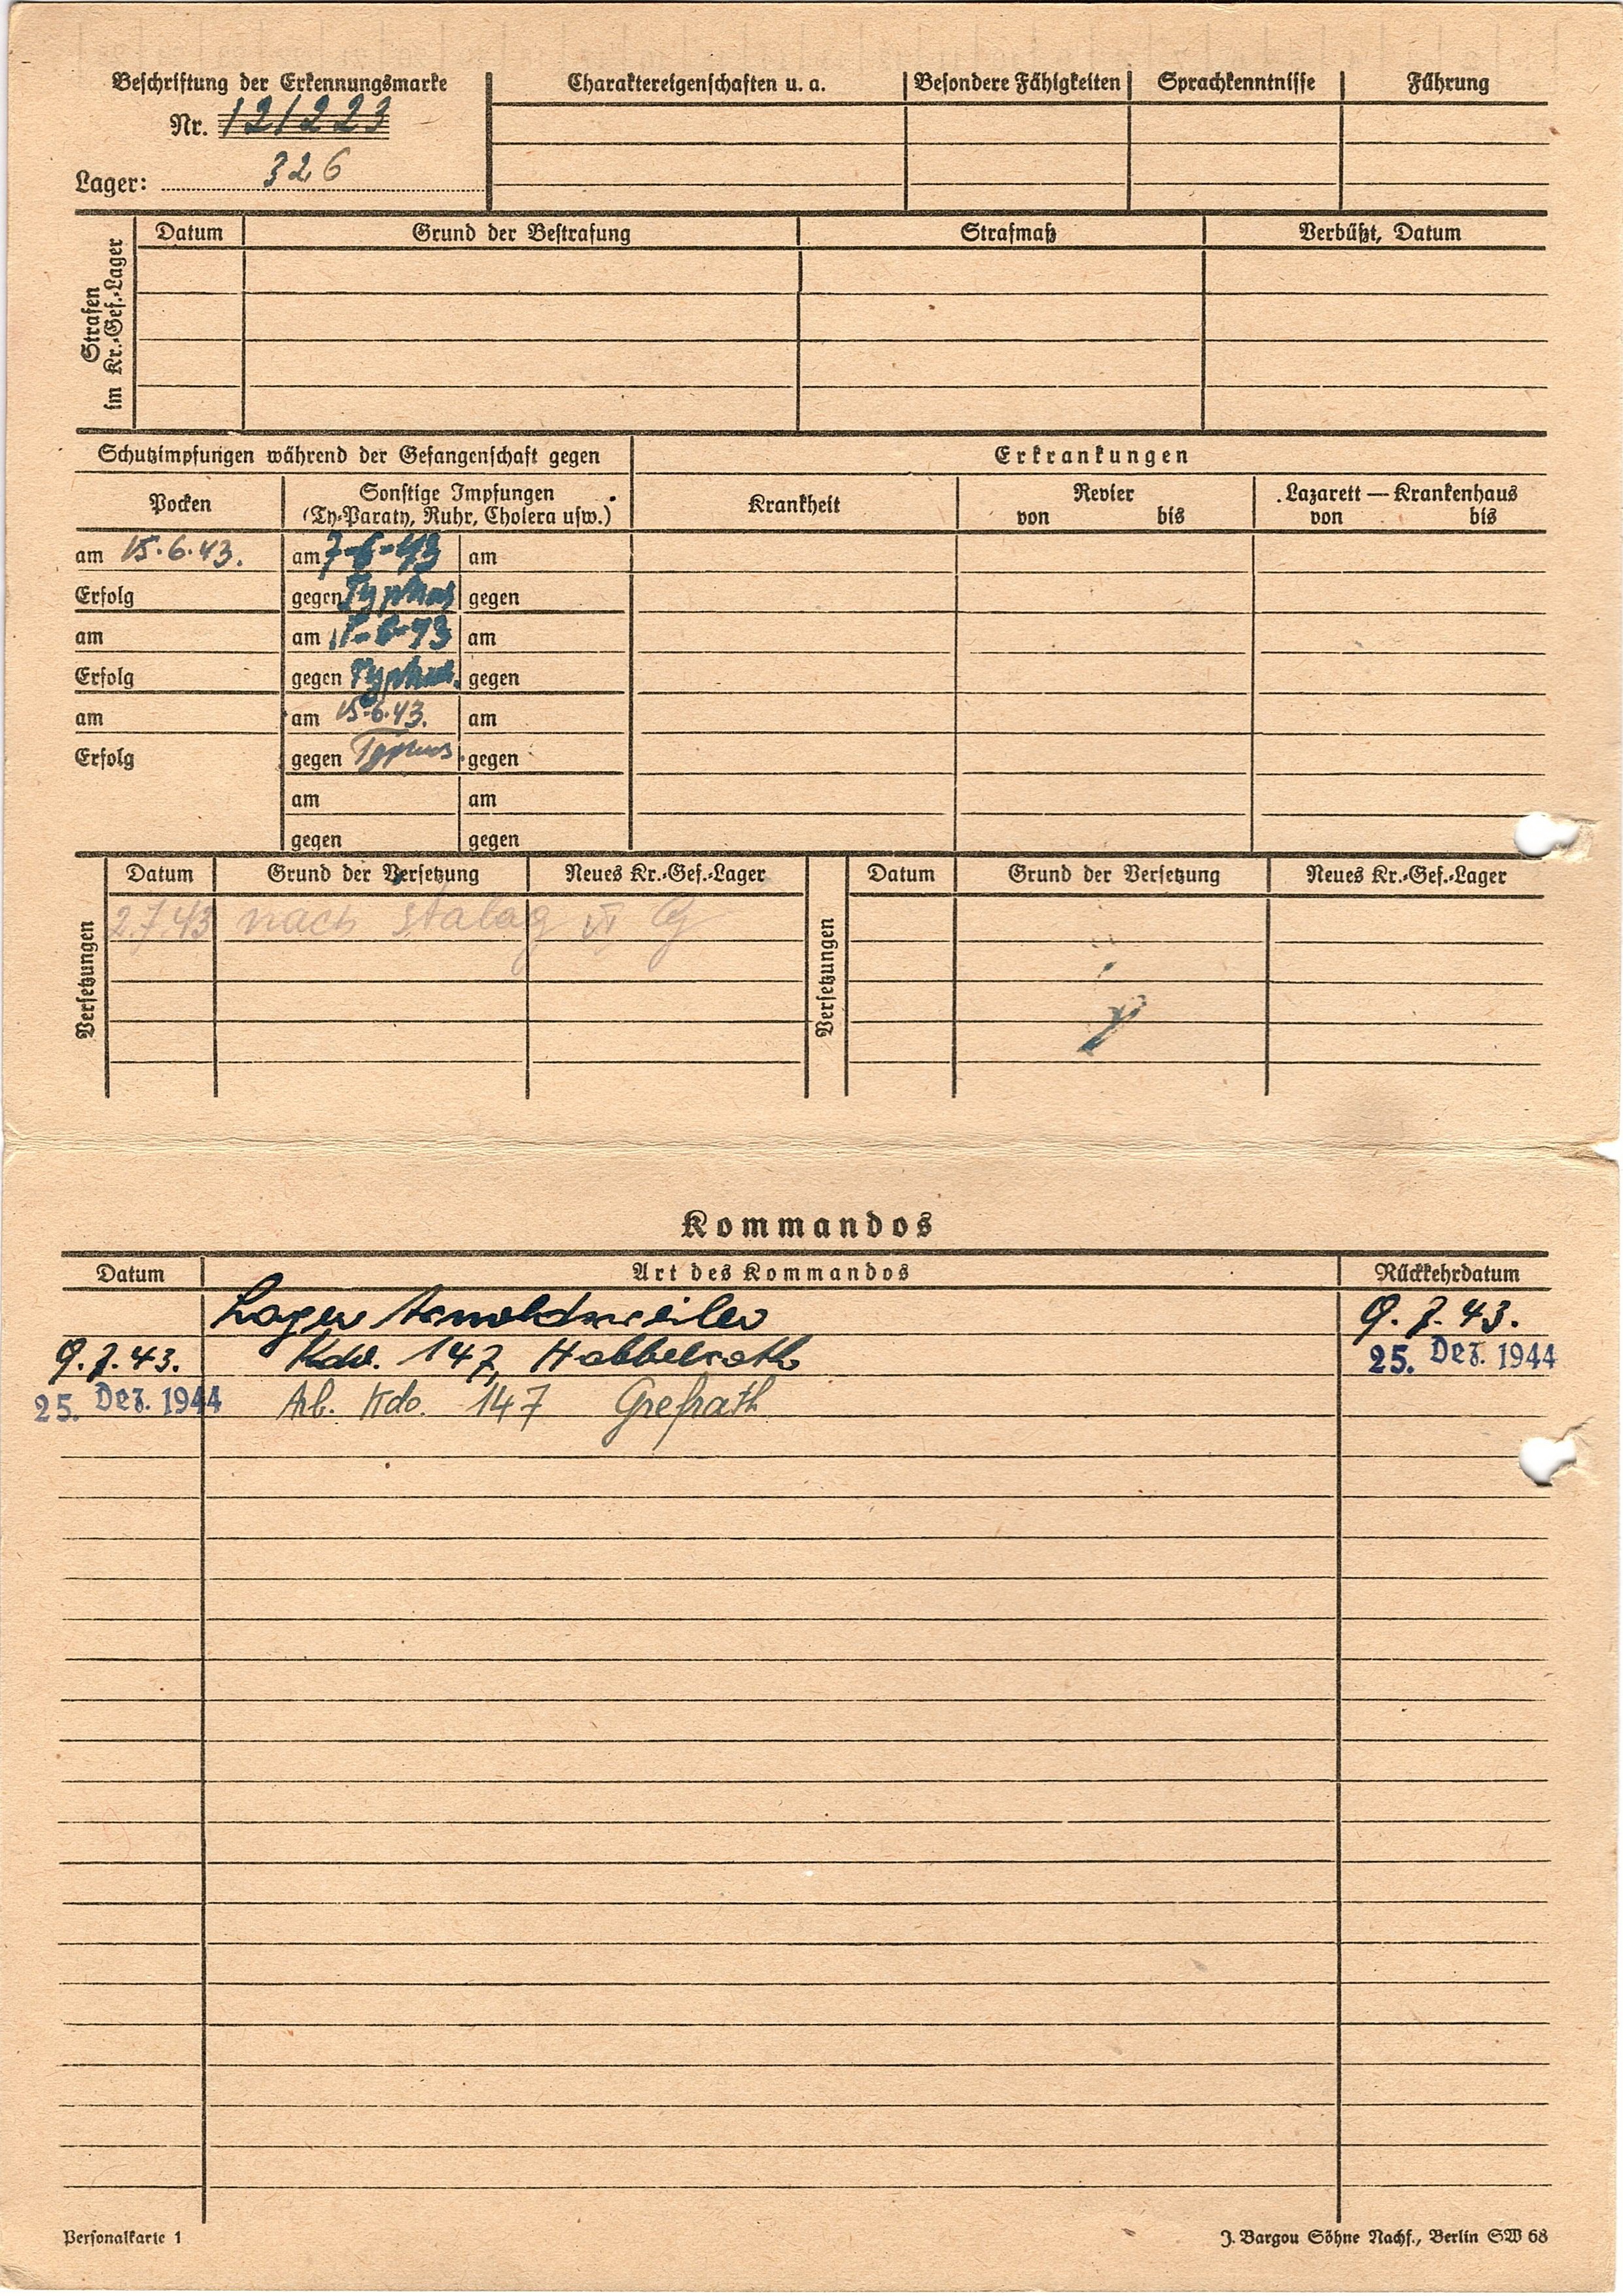 Beschriftung der Erkennungsmarke
Nr. 121223
Lager: 326
Charaktereigenschaften u. a. Besondere Fähigkeiten Sprachkenntnisse Führung
Strafen im Kr.-Gef.-Lager
Datum Grund der Bestrafung Strafmaß Verbüßt, Datum
Schutzimpfungen während der Gefangenschaft gegen Erkrankungen
Pocken Sonstige Impfungen (Ty-Paraty, Ruhr, Cholera usw.) Krankheit Revier von bis Lazarett — Krankenhaus von bis
am 15.6.43. am 7-6-43 am
Erfolg gegen Typhus gegen
am am 11-6-43 am
Erfolg gegen Typhus gegen
am am 15.6.43. am
Erfolg gegen Typhus gegen
am am
gegen gegen
Versetzungen Datum Grund der Versetzung Neues Kr.-Gef.-Lager Versetzungen Datum Grund der Versetzung Neues Kr.-Gef.-Lager
2.7.43 nach Stalag VI G
Kommandos
Datum Art des Kommandos Rückkehrdatum
Lager Arnoldsweiler 9.7.43.
9.7.43. Kdo. 147, Habbelrath 25. Dez. 1944
25. Dez. 1944 Arb. Kdo. 147 Grefrath
Personalkarte 1 J. Bargou Söhne Nachf., Berlin SW 68